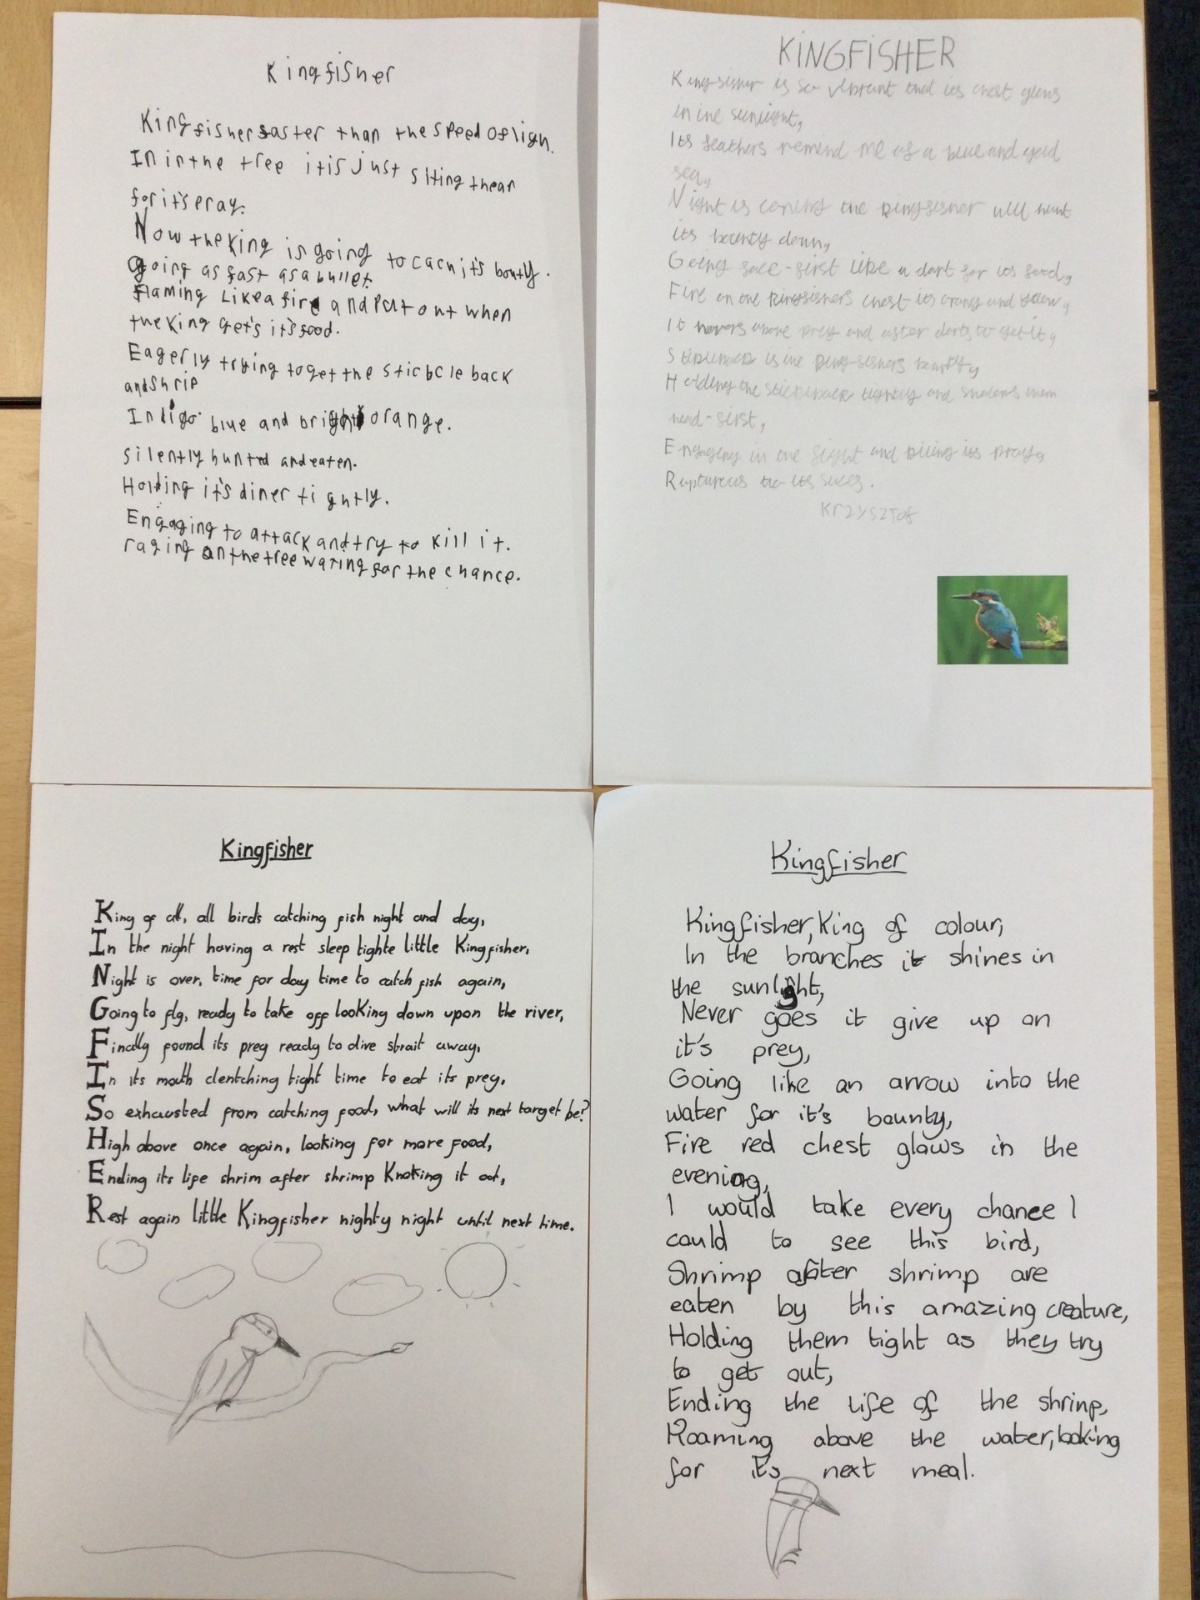 Kingfisher
Kingfisher faster than the speed of lign.
In in the tree it is just siting thear
for it's pray.
Now the King is going to cacn it's bouty.
Going as fast as a bullet.
flaming Like a fire and Put out when
the King get's it's food.
Eagerly trying to get the sticbcle back
and shrip
Indigo blue and bright orange.
Silently hunted and eaten.
Holding it's diner tightly.
Engaging to attack and try to kill it.
raging on the tree wating for the chance.
KINGFISHER
Kingfisher is so vibrant that its chest glows
in the sunlight,
Its feathers remind me of a blue and gold
sea,
Night is coming the kingfisher will hunt
its bounty down,
Going face-first like a dart for its food,
Fire on the kingfishers chest its orang and yellow,
It hovers above prey and after darts to get it,
Stickleback is the kingfishers bounty,
Holding the stickleback tightly and swallows them
head-first,
Engaging in the fight and killing its pray,
Krzysztof
Kingfisher
King of all, all birds catching fish night and day,
In the night having a rest sleep tighte little Kingfisher,
Night is over, time for day time to catch fish again,
Going to fly, ready to take off looking down upon the river,
Finally found its prey ready to dive strait away,
In its mouth clentching tight time to eat its prey,
So exhausted from catching food, what will its next target be?
High above once again, looking for more food,
Ending its life shrim after shrimp Knoking it out,
Rest again little Kingfisher nighty night until next time.
Kingfisher
Kingfisher, King of colour,
In the branches it shines in
the sunlight,
Never goes it give up on
it's prey,
Going like an arrow into the
water for it's bounty,
Fire red chest glows in the
evening,
I would take every chance I
could to see this bird,
Shrimp after shrimp are
eaten by this amazing creature,
Holding them tight as they try
to get out,
Ending the life of the shrimp,
Roaming above the water, looking
for it's next meal.